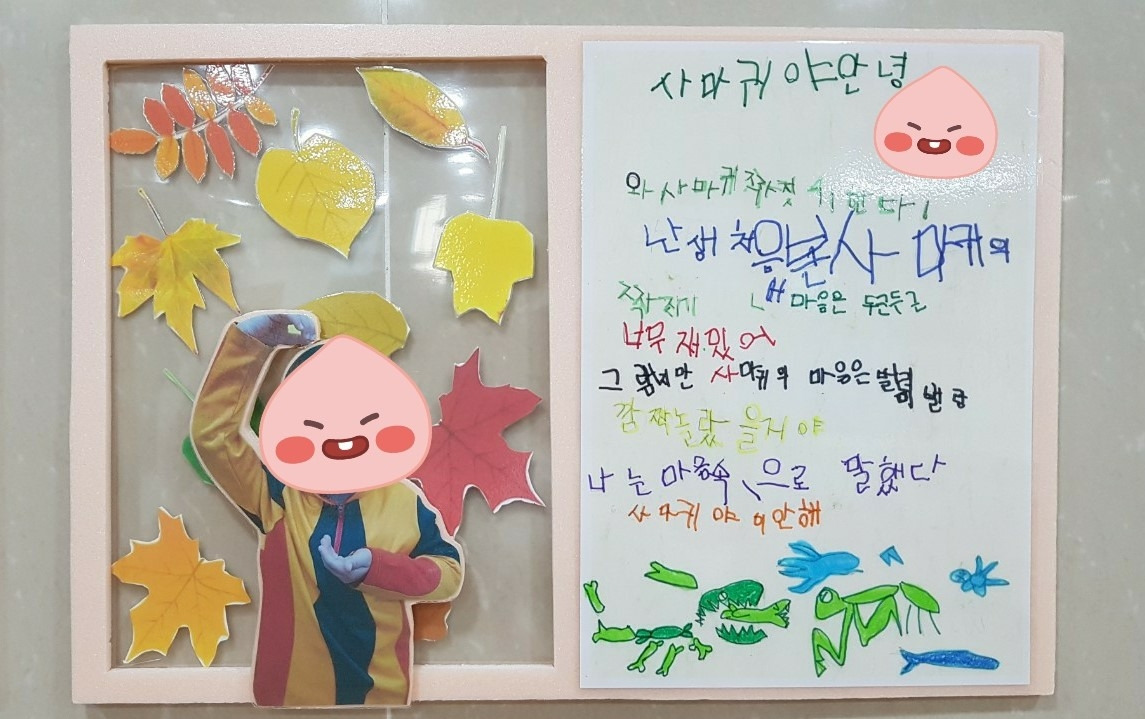 사마귀야안녕
와 사마귀 짝짓기한다!
난생 처음본사마귀의
짝지기 내 마음은 두근두근
너무 재밌어
그렇지만 사마귀의 마음은 벌렁벌렁
깜짝놀랐을거야
나는 마음속으로 말했다
사마귀야 미안해